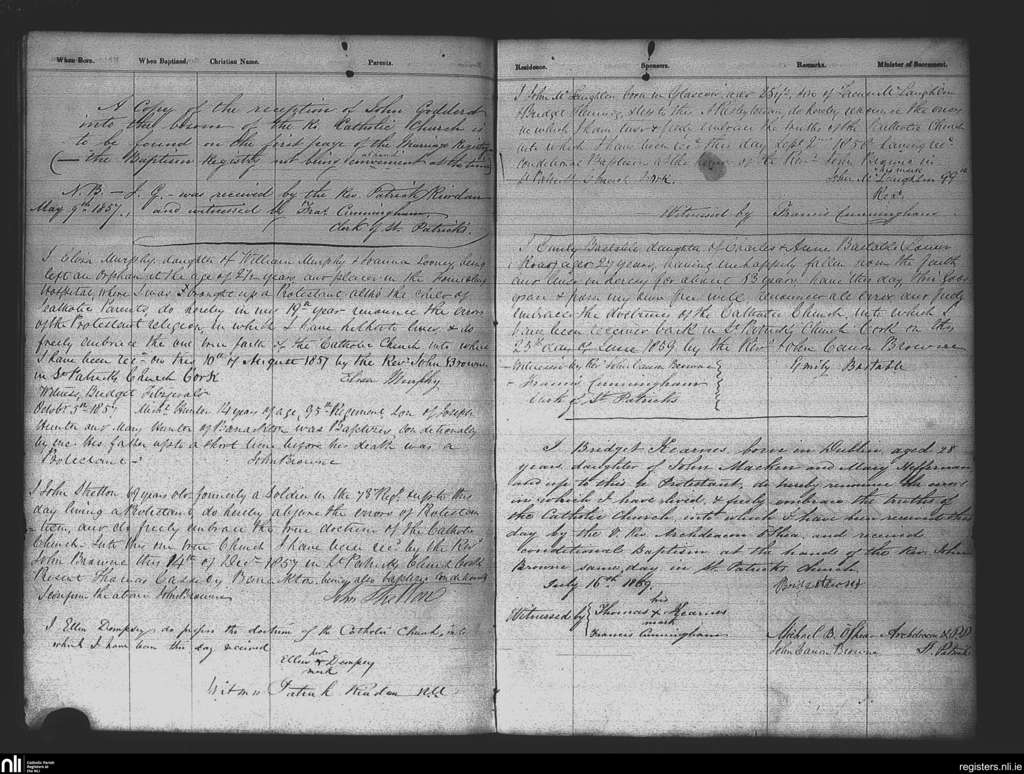 When Born. When Baptized. Christian Name. Parents.
A Copy of the reception of John Godderd
into the bosom of the R. Catholic Church is
to be found on the first page of the Marriage Registry
(— the Baptism Registry not being convenient at the time)
N.B. — J. G. was received by the Rev. Patrick Riordan
May 9th 1857, and witnessed by Fras. Cunningham,
Clerk of St. Patrick's.
I Eliza Murphy daughter of William Murphy & Joanna Looney, being
left an Orphan at the age of 2½ years and placed in the Foundling
Hospital, where I was brought up a Protestant altho the child of
Catholic Parents, do hereby in my 19th year renounce the errors
of the Protestant religion, in which I have hitherto lived, & do
freely embrace the one true faith of the Catholic Church into which
I have been recd. on this 10th of August 1857 by the Revd. John Browne
in St Patricks Church Cork
Eliza Murphy
Witness, Bridget Fitzgerald
Octobr 5th 1857 Michl. Hunter 14 years of age, 95th Regiment, Son of Joseph
Hunter and Mary Hunter of Banaskton was Baptized conditionally
by me. His father up to a short time before his death was a
Protestant —
John Browne
I John Shelton 69 years old formerly a Soldier in the 73d Regt. up to this
day living a Protestant, do hereby abjure the errors of Protestan-
tism, and do freely embrace the true doctrine of the Catholic
Church. Into this one true Church I have been recd. by the Revd.
John Browne this 14th of Decr. 1857 in St Patricks Church Cork
Present Thomas Casseby being also baptized conditionally
Sevenpm the above John Browne
John Shelton
I Ellen Dempsey do profess the doctrine of the Catholic Church, into
which I have been this day received
her
Ellen x Dempsey
mark
Witness Patrick Riordan
Residence. Sponsors. Remarks. Minister of Sacrament.
I John McLaughlin born in Glascow aged 25 yrs. son of James McLaughlin
& Bridget Fleming, up to this a Presbyterian, do hereby renounce the errors
in which I have lived & freely embrace the truths of the Catholic Church
into which I have been recd. this day Sept 2nd 1858 having recd.
conditional Baptism at the hands of the Revd. John Browne in
St Patricks Church Cork.
his mark
John McLaughlin 99th
Regt.
Witnessed by Francis Cunninghame
I Emily Bastable daughter of Charles & Anne Bastable
Road aged 27 years, having unhappily fallen from the faith
and lived in heresy for about 13 years have this day, thro' God's
grace & from my own free will renounced all error and freely
embraced the doctrines of the Catholic Church, into which I
have been received back in St Patricks Church Cork on this
25th day of June 1859 by the Revd. John Canon Browne
Witnessed by the John Canon Browne
Emily Bastable
Francis Cunningham
Clerk of St Patricks
I Bridget Kearnes, born in Dublin, aged 28
years, daughter of John Macken and Mary Heffernan
and up to this a Protestant, do hereby renounce the errors
in which I have lived, & freely embrace the truths of
the Catholic Church, into which I have been received this
day by the V. Rev. Archdeacon O'Shea, and received
conditional Baptism at the hands of the Rev. John
Browne same day in St. Patricks Church
July 16th 1869.
Witnessed by
his
Thomas x Kearnes
mark
Francis Cunningham
Michael B. O'Shea Archdeacon & P.P.
John Canon Browne St. Patricks
nli
Catholic Parish
Registers at
the NLI
registers.nli.ie